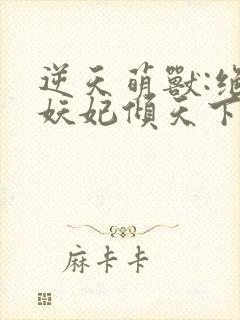 逆天萌獸:絕
妖妃傾天下
麻卡卡